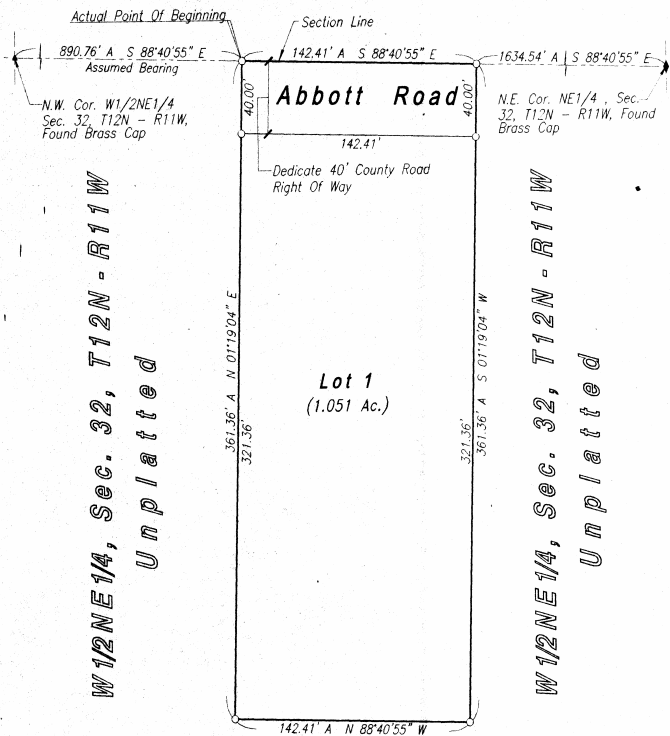 Actual Point Of Beginning
Section Line
890.76' A S 88°40'55" E
Assumed Bearing
142.41' A S 88°40'55" E
1634.54' A S 88°40'55" E
N.W. Cor. W1/2NE1/4
Sec. 32, T12N - R11W,
Found Brass Cap
40.00'
Abbott Road
40.00'
N.E. Cor. NE1/4 , Sec.
32, T12N - R11W, Found
Brass Cap
142.41'
Dedicate 40' County Road
Right Of Way
W1/2NE1/4, Sec. 32, T12N - R11W
Unplatted
361.36' A N 01°19'04" E
321.36'
Lot 1
(1.051 Ac.)
321.36'
361.36' A S 01°19'04" W
W1/2NE1/4, Sec. 32, T12N - R11W
Unplatted
142.41' A N 88°40'55" W